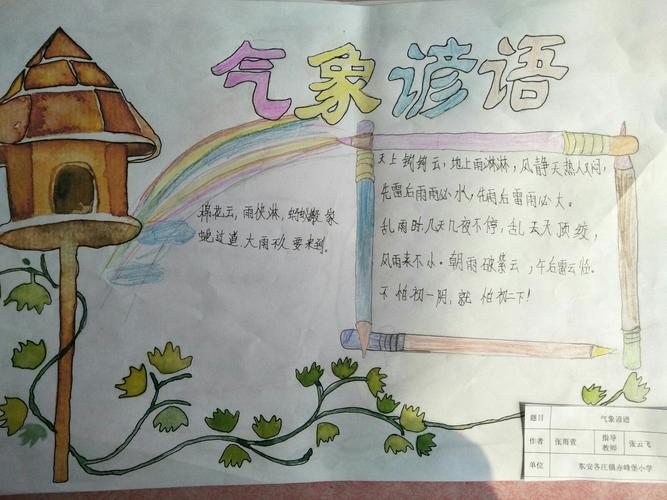 气象谚语
棉花云，雨快淋，蚂蚁搬家
蛇过道，大雨不久要来到。
天上钩钩云，地上雨淋淋，风静天热人又闷，
先雷后雨雨必小，先雨后雷雨必大。
乱雨时，几天几夜不停，乱云天顶绞，
风雨来不小。朝雨破紫云，午后雷云临。
不怕初一阴，就怕初二下！
题目 气象谚语
作者 张雨萱 指导教师 张云飞
单位 东安各庄镇赤峰堡小学